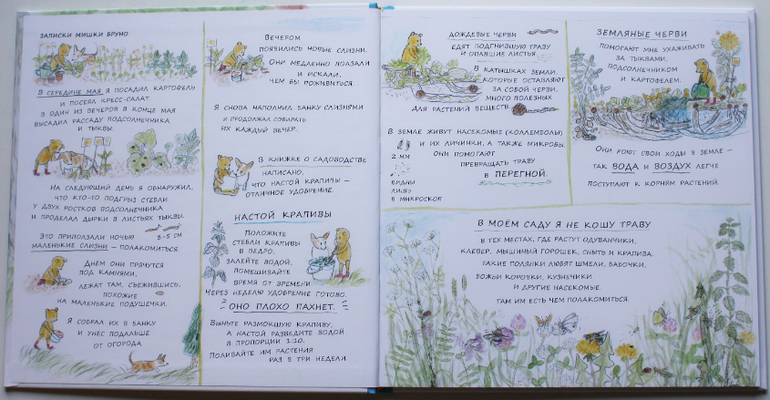 ЗАПИСКИ МИШКИ БРУНО
В СЕРЕДИНЕ МАЯ Я ПОСАДИЛ КАРТОФЕЛЬ
И ПОСЕЯЛ КРЕСС-САЛАТ.
В ОДИН ИЗ ВЕЧЕРОВ В КОНЦЕ МАЯ
ВЫСАДИЛ РАССАДУ ПОДСОЛНЕЧНИКА
И ТЫКВЫ.
НА СЛЕДУЮЩИЙ ДЕНЬ Я ОБНАРУЖИЛ,
ЧТО КТО-ТО ПОДГРЫЗ СТЕБЛИ
У ДВУХ РОСТКОВ ПОДСОЛНЕЧНИКА
И ПРОДЕЛАЛ ДЫРКИ В ЛИСТЬЯХ ТЫКВЫ.
ЭТО ПРИПОЛЗАЛИ НОЧЬЮ
3-5 СМ
МАЛЕНЬКИЕ СЛИЗНИ – ПОЛАКОМИТЬСЯ.
ДНЁМ ОНИ ПРЯЧУТСЯ
ПОД КАМНЯМИ,
ЛЕЖАТ ТАМ, СЪЁЖИВШИСЬ,
ПОХОЖИЕ
НА МАЛЕНЬКИЕ ПОДУШЕЧКИ.
Я СОБРАЛ ИХ В БАНКУ
И УНЁС ПОДАЛЬШЕ
ОТ ОГОРОДА.
ВЕЧЕРОМ
ПОЯВИЛИСЬ НОВЫЕ СЛИЗНИ.
ОНИ МЕДЛЕННО ПОЛЗАЛИ
И ИСКАЛИ,
ЧЕМ БЫ ПОЖИВИТЬСЯ.
Я СНОВА НАПОЛНИЛ БАНКУ СЛИЗНЯМИ
И ПРОДОЛЖАЛ СОБИРАТЬ
ИХ КАЖДЫЙ ВЕЧЕР.
В КНИЖКЕ О САДОВОДСТВЕ
НАПИСАНО,
ЧТО НАСТОЙ КРАПИВЫ –
ОТЛИЧНОЕ УДОБРЕНИЕ.
НАСТОЙ КРАПИВЫ
ПОЛОЖИТЕ
СТЕБЛИ КРАПИВЫ
В ВЕДРО,
ЗАЛЕЙТЕ ВОДОЙ,
ПОМЕШИВАЙТЕ
ВРЕМЯ ОТ ВРЕМЕНИ.
ЧЕРЕЗ НЕДЕЛЮ УДОБРЕНИЕ ГОТОВО.
ОНО ПЛОХО ПАХНЕТ.
ВЫНЬТЕ РАЗМОКШУЮ КРАПИВУ,
А НАСТОЙ РАЗВЕДИТЕ ВОДОЙ
В ПРОПОРЦИИ 1:10.
ПОЛИВАЙТЕ ИМ РАСТЕНИЯ
РАЗ В ТРИ НЕДЕЛИ.
ДОЖДЕВЫЕ ЧЕРВИ
ЕДЯТ ПОДГНИВШУЮ ТРАВУ
И ОПАВШИЕ ЛИСТЬЯ.
В КАТЫШКАХ ЗЕМЛИ,
КОТОРЫЕ ОСТАВЛЯЮТ
ЗА СОБОЙ ЧЕРВИ,
МНОГО ПОЛЕЗНЫХ
ДЛЯ РАСТЕНИЙ ВЕЩЕСТВ.
В ЗЕМЛЕ ЖИВУТ НАСЕКОМЫЕ (КОЛЛЕМБОЛЫ)
И ИХ ЛИЧИНКИ, А ТАКЖЕ МИКРОБЫ.
ОНИ ПОМОГАЮТ
2 ММ
ПРЕВРАЩАТЬ ТРАВУ
В ПЕРЕГНОЙ.
ВИДНЫ
ЛИШЬ
В МИКРОСКОП
ЗЕМЛЯНЫЕ ЧЕРВИ
ПОМОГАЮТ МНЕ УХАЖИВАТЬ
ЗА ТЫКВАМИ,
ПОДСОЛНЕЧНИКОМ
И КАРТОФЕЛЕМ.
ОНИ РОЮТ СВОИ ХОДЫ В ЗЕМЛЕ –
ТАК ВОДА И ВОЗДУХ ЛЕГЧЕ
ПОСТУПАЮТ К КОРНЯМ РАСТЕНИЙ.
В МОЁМ САДУ Я НЕ КОШУ ТРАВУ
В ТЕХ МЕСТАХ, ГДЕ РАСТУТ ОДУВАНЧИКИ,
КЛЕВЕР, МЫШИНЫЙ ГОРОШЕК, СНЫТЬ И КРАПИВА.
ТАКИЕ ПОЛЯНКИ ЛЮБЯТ ШМЕЛИ, БАБОЧКИ,
БОЖЬИ КОРОВКИ, КУЗНЕЧИКИ
И ДРУГИЕ НАСЕКОМЫЕ.
ТАМ ИМ ЕСТЬ ЧЕМ ПОЛАКОМИТЬСЯ.